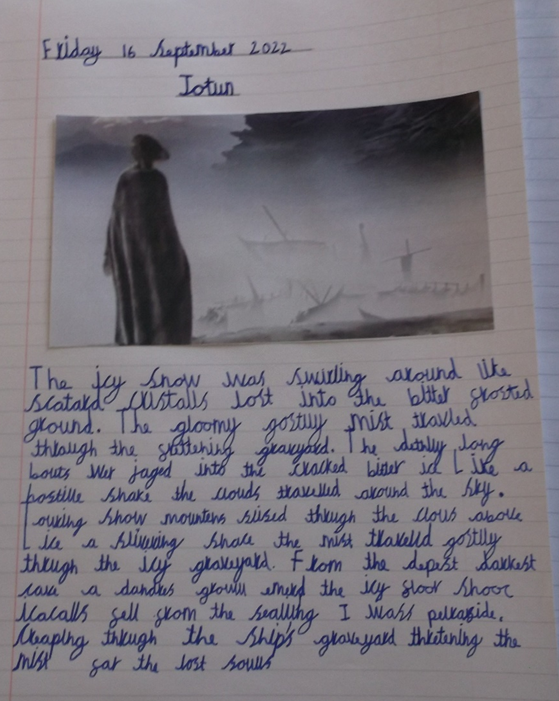 Friday 16 September 2022
Jotun
The icy snow was swirling around like
scatard cristalls lost into the bitter frosted
ground. The gloomy gostly mist travled
through the glittening graveyard. The long
bouts wer jaged into the cracked bitter ice Like a
snake the clouds travelled around the sky.
snow mountens through the clous above
Like a slivering the mist traveld gostly
through the icy graveyard. From the depest darkest
cave a growll the icy floor shooc
Icacalls fell from the sealling I wass petrafide.
Creaping through the ships graveyard thretening the
mist for the lost souls